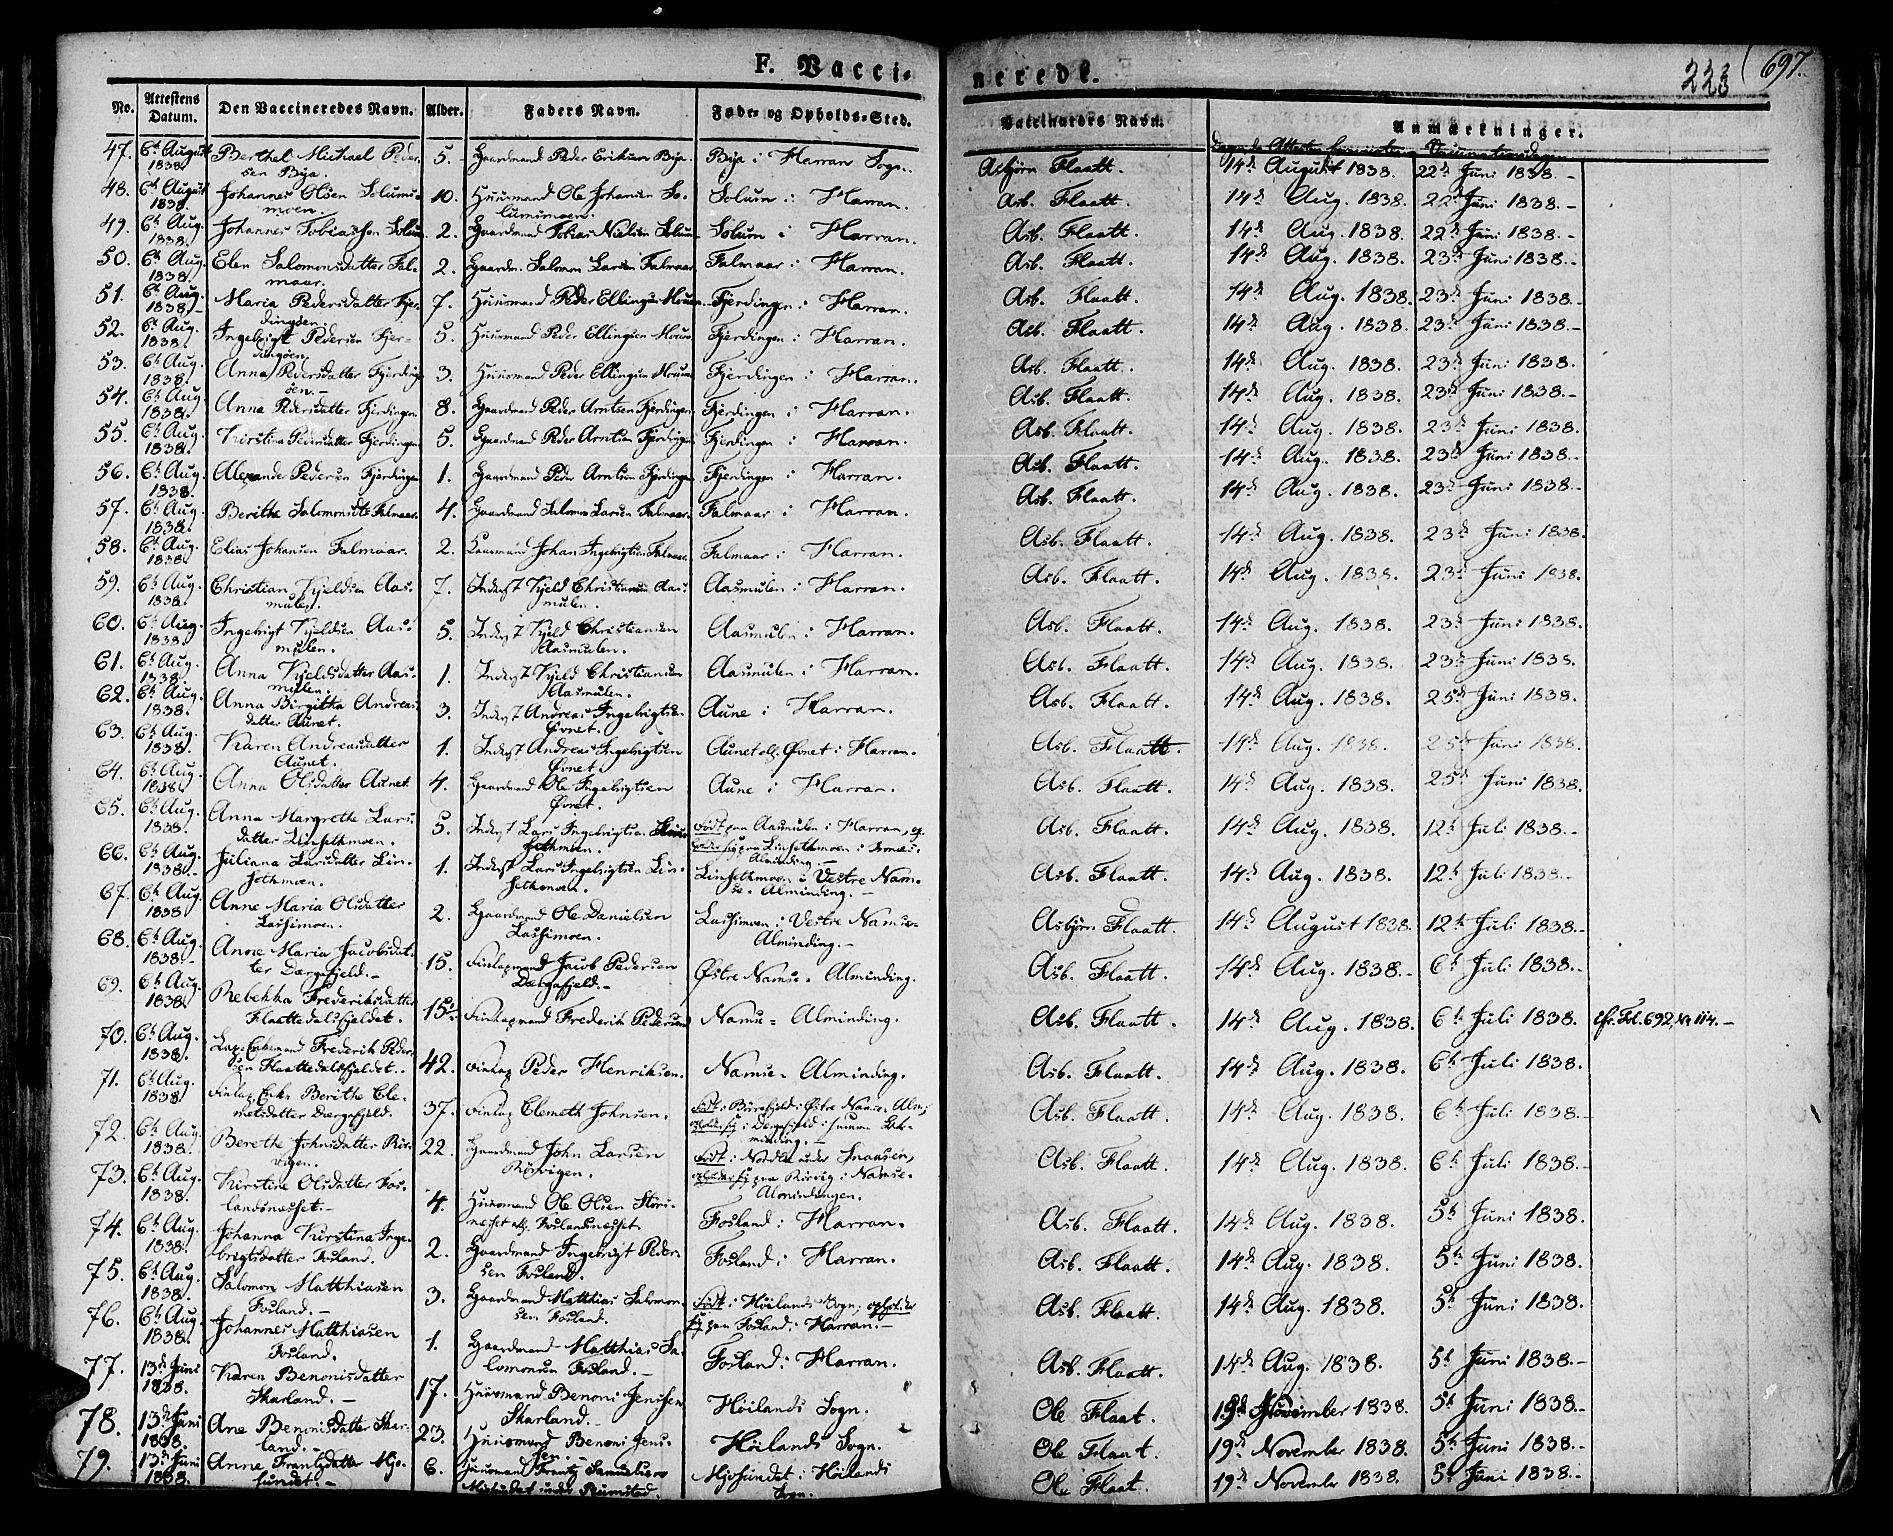 F. Vacci-
nerede.
223 697.
No. Attestens Datum. Den Vaccineredes Navn. Alder. Faders Navn. Føde- og Opholds-Sted. Vaccinators Navn. Anmærkninger.
47. 6t August 1838. Berthel Michael Pedersen Bjø. 5. Gaardmand Peder Eriksen Bjø. Bjø i Harran Sogn. Asbjørn Flaatt. 14de August 1838. 22de Juni 1838.-
48. 6t August 1838. Johannes Olsen Solumsmoen. 10. Huusmand Ole Johansen Solumsmoen. Solum i Harran. Asb. Flaatt. 14de Aug. 1838. 22de Juni 1838.-
49. 6t Aug. 1838. Johannes Tobiassen Solum. 2. Gaardmand Tobias Nielsen Solum. Solum i Harran. Asb. Flaatt. 14de Aug. 1838. 22de Juni 1838.-
50. 6t Aug. 1838. Elen Salomonsdatter Falmaar. 2. Gaardm. Salomon Larsen Falmaar. Falmaar i Harran. Asb. Flaatt. 14de Aug. 1838. 23de Juni 1838.-
51. 6t Aug. 1838.- Maria Pedersdatter Fjerdingøen. 7. Huusmand Peder Ellingsen Fjerdingen i Harran. Asb. Flaatt. 14de Aug. 1838. 23de Juni 1838.-
52. 6t Aug. 1838. Ingebrigt Pedersen Fjerdingøen. 5. Huusmand Peder Ellingsen Fjerdingen i Harran. Asb. Flaatt. 14de Aug. 1838. 23de Juni 1838.-
53. 6t Aug. 1838. Anna Pedersdatter Fjerdingøen.- 3. Huusmand Peder Ellingsen Fjerdingen i Harran. Asb. Flaatt. 14de Aug. 1838. 23de Juni 1838.-
54. 6t Aug. 1838. Anna Pedersdatter Fjerdingen. 8. Gaardmand Peder Arntsen Fjerdingen. Fjerdingen i Harran. Asb. Flaatt. 14de Aug. 1838. 23de Juni 1838.-
55. 6t Aug. 1838. Kirstina Pedersdatter Fjerdingen. 5. Gaardmand Peder Arntsen Fjerdingen. Fjerdingen i Harran. Asb. Flaatt. 14de Aug. 1838. 23de Juni 1838.
56. 6t Aug. 1838. Alexander Pedersen Fjerdingen. 1. Gaardmand Peder Arntsen Fjerdingen. Fjerdingen i Harran. Asb. Flaatt. 14de Aug. 1838. 23de Juni 1838.-
57. 6t Aug. 1838. Berithe Salomonsdtr Falmaar. 4. Gaardmand Salomon Larsen Falmaar. Falmaar i Harran. Asb. Flaatt. 14de Aug. 1838. 23de Juni 1838.-
58. 6t Aug. 1838. Elias Johansen Falmaar. 2. Gaardmand Johan Ingebrigtsen Falmaar. Falmaar i Harran. Asb. Flaatt. 14de Aug. 1838. 23de Juni 1838.
59. 6t Aug. 1838. Christian Kjeldsen Aasmulen. 7. Inderst Kjeld Christiansen Aasmulen. Aasmulen i Harran. Asb. Flaatt. 14de Aug. 1838. 23de Juni 1838.
60. 6t Aug. 1838. Ingebrigt Kjeldsen Aasmulen. 5. Inderst Kjeld Christiansen Aasmulen. Aasmulen i Harran. Asb. Flaatt. 14de Aug. 1838. 23de Juni 1838.
61. 6t Aug. 1838. Anna Kjeldsdatter Aasmulen. 1. Inderst Kjeld Christiansen Aasmulen. Aasmulen i Harran. Asb. Flaatt. 14de Aug. 1838. 23de Juni 1838.
62. 6t Aug. 1838. Anna Birgitta Andreasdatter Aunet. 3. Inderst Andreas Ingebrigtsen Øvnet. Aune i Harran. Asb. Flaatt. 14de Aug. 1838. 25de Juni 1838.
63. 6t Aug. 1838. Karen Andreasdatter Aunet. 1. Inderst Andreas Ingebrigtsen Øvnet. Aunet ell. Øvnet i Harran. Asb. Flaatt. 14de Aug. 1838. 25de Juni 1838.
64. 6t Aug. 1838. Anna Olsdatter Aunet. 4. Gaardmand Ole Ingebrigtsen Øvnet. Aune i Harran. Asb. Flaatt. 14de Aug. 1838. 25de Juni 1838.
65. 6t Aug. 1838. Anna Margrethe Larsdatter Linsethmoen. 5. Inderst Lars Ingebrigtsen Linsethmoen. Født paa Aasmulen i Harran, Linsethmoen i Alminding.- Asb. Flaatt. 14de Aug. 1838. 12te Juli 1838.-
66. 6t Aug. 1838.- Juliana Larsdatter Linsethmoen. 1. Inderst Lars Ingebrigtsen Linsethmoen. Linsethmoen i Vestre Namse-Alminding.- Asb. Flaatt. 14de Aug. 1838. 12te Juli 1838.-
67. 6t Aug. 1838 Anne Maria Olsdatter Lassimoen. 2. Gaardmand Ole Danielsen Lassimoen. Lassimoen i Vestre Namse-Alminding.- Asbjørn Flaatt. 14de August 1838. 12te Juli 1838.-
68. 6t Aug. 1838.- Anne Maria Jacobsdatter Dærgafjeld.- 15. Finlapmand Jacob Pedersen Dærgafjeld.- Østre Namse-Alminding. Asb. Flaatt. 14de Aug. 1838.- 6te Juli 1838.-
69. 6t Aug. 1838. Rebekka Frederiksdatter Flaattedalsfjeldet. 15½. Finlapmand Frederik Pedersen. Namse-Alminding. Asb. Flaatt. 14de Aug. 1838. 6te Juli 1838. cfr. Fol. 692, Nr 114.-
70. 6t Aug. 1838. Frederik Pedersen Flaattedalsfjeldet. 42. Finlap Peder Henriksen. Namse-Alminding. Asb. Flaatt. 14de Aug. 1838. 6te Juli 1838.
71. 6t Aug. 1838 Finlap Enke Berithe Clemetsdatter Dærgafjeld. 37. Finlap Clemeth Johnsen. Født i Østre Namse-Alm; Dærgafjeld i samme Alminding.- Asb. Flaatt. 14de Aug. 1838. 6te Juli 1838.-
72. 6t Aug. 1838. Berethe Johnsdatter Rørvigen. 22. Gaardmand John Larsen Rørvigen. Født i Nordlie under Snaasen, opholder sig paa Rørvig i Namse-Almindingen. Asb. Flaatt. 14de Aug. 1838. 6te Juli 1838.-
73. 6t Aug. 1838. Kirstine Olsdatter Foslandsnesset.- 4. Huusmand Ole Olsen nesset ell. Foslandsnesset. Fosland i Harran. Asb. Flaatt. 14de Aug. 1838. 5te Juni 1838.
74. 6t Aug. 1838. Johanna Kirstina Ingebrigtsdatter Fosland. 2. Gaardmand Ingebrigt Pedersen Fosland. Fosland i Harran. Asb. Flaatt. 14de Aug. 1838. 5te Juni 1838.
75. 6t Aug. 1838. Salomon Matthiasen Fosland.- 3. Gaardmand Matthias Salomonsen Fosland. Født i Høilands Sogn, opholder sig paa Fosland i Harran.- Asb. Flaatt. 14de Aug. 1838. 5te Juni 1838.
76. 6t Aug. 1838. Johannes Matthiasen Fosland. 1. Gaardmand Matthias Salomonsen Fosland.- Fosland i Harran. Asb. Flaatt. 14de Aug. 1838. 5te Juni 1838.-
77. 13de Juni 1838. Karen Benonisdatter Skarland.- 17. Huusmand Benoni Jensen Skarland.- Høilands Sogn. Ole Flaat. 19de November 1838. 5te Juni 1838.-
78. 13de Juni 1838. Ane Benonisdatter Skarland.- 23. Huusmand Benoni Jensen.- Høilands Sogn. Ole Flaat. 19de November 1838. 5te Juni 1838.-
79. 13de Juni 1838. Anne Frantzdatter Mjosundet.- 6. Huusmand Frantz Samuelsen Mjosundet under Mjosundet i Høilands Sogn. Ole Flaat. 19de November 1838. 5te Juni 1838.-